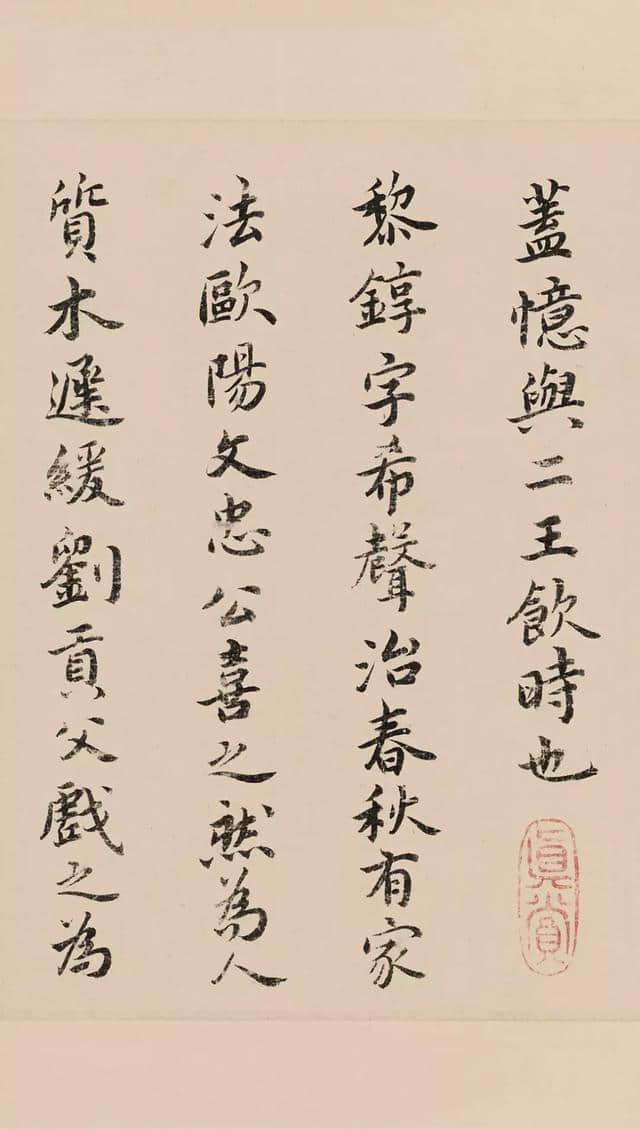 蓋憶與二王飲時也
真賞
黎錞字希聲治春秋有家
法歐陽文忠公喜之然為人
質木遲緩劉貢父戲之為